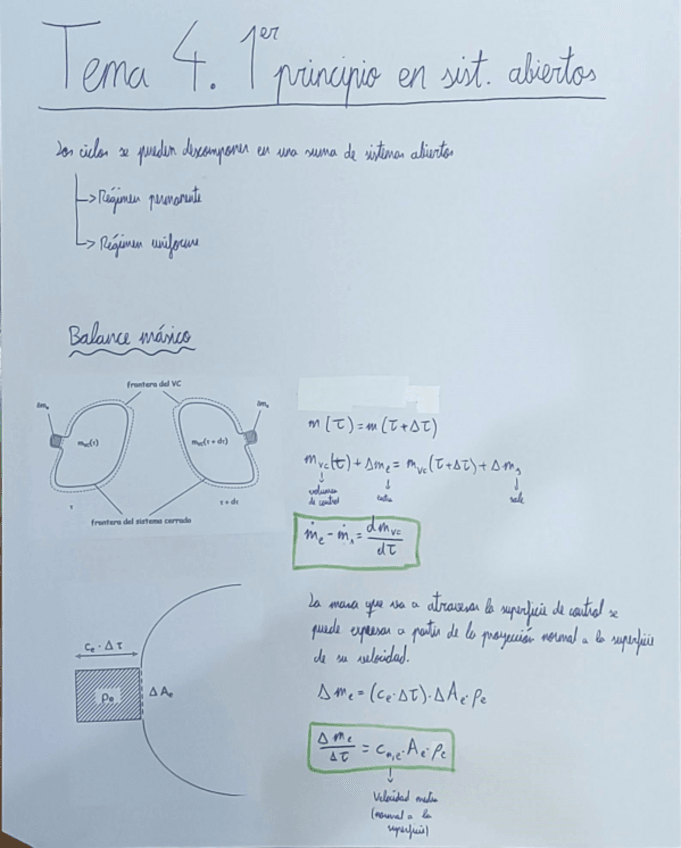 Tema 4. 1er principio en sist. abiertos
Los ciclos se pueden descomponer en una suma de sistemas abiertos
-> Régimen permanente
-> Régimen uniforme
Balance másico
frontera del VC
δmₑ
δmₛ
m_VC(τ)
m_VC(τ + dτ)
τ
τ + dτ
frontera del sistema cerrado
m(τ) = m(τ+Δτ)
m_vc(τ) + Δmₑ = m_vc(τ+Δτ) + Δmₛ
↓ volumen de control
↓ entra
↓ sale
ṁₑ - ṁₛ = dm_vc/dτ
cₑ · Δτ
ρₑ
ΔAₑ
La masa que va a atravesar la superficie de control se
puede expresar a partir de la proyección normal a la superficie
de su velocidad.
Δmₑ = (cₑ·Δτ)·ΔAₑ·ρₑ
Δmₑ/Δτ = c_n,e·Aₑ·ρₑ
↓
Velocidad media
(normal a la
superficie)